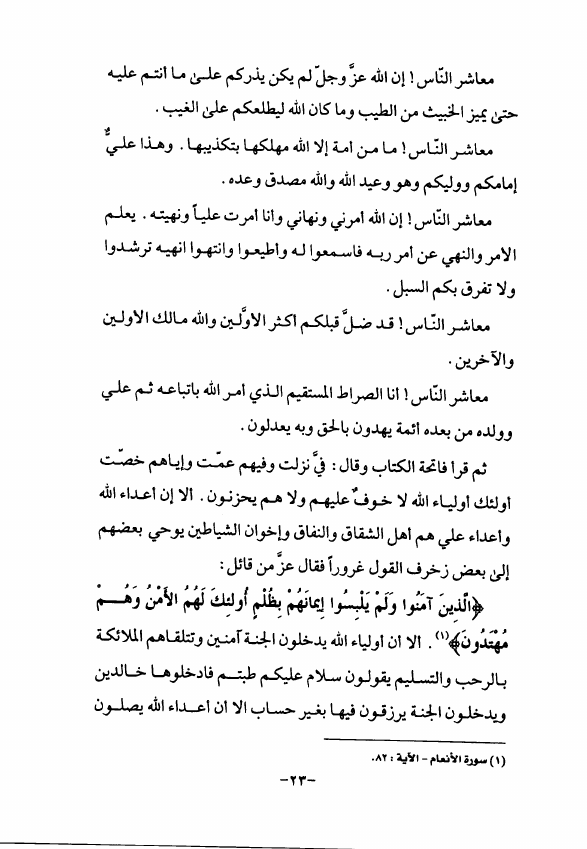 معاشر النّاس! إن الله عزَّ وجلّ لم يكن يذركم علىٰ ما أنتم عليه
حتىٰ يميز الخبيث من الطيب وما كان الله ليطلعكم علىٰ الغيب.
معاشر النّاس! ما من أمة إلا الله مهلكها بتكذيبها. وهذا عليٌّ
إمامكم ووليكم وهو وعيد الله والله مصدق وعده.
معاشر النّاس! إن الله أمرني ونهاني وأنا أمرت علياً ونهيته. يعلم
الأمر والنهي عن أمر ربه فاسمعوا له وأطيعوا وانتهوا انهيه ترشدوا
ولا تفرق بكم السبل.
معاشر النّاس! قد ضلَّ قبلكم أكثر الأوَّلين والله مالك الأولين
والآخرين.
معاشر النّاس! أنا الصراط المستقيم الذي أمر الله باتباعه ثم علي
وولده من بعده أئمة يهدون بالحق وبه يعدلون.
ثم قرأ فاتحة الكتاب وقال: فيَّ نزلت وفيهم عمّت وإياهم خصّت
أولئك أولياء الله لا خوفٌ عليهم ولا هم يحزنون. ألا إن أعداء الله
وأعداء علي هم أهل الشقاق والنفاق وإخوان الشياطين يوحي بعضهم
إلىٰ بعض زخرف القول غروراً فقال عزَّ من قائل:
﴿الَّذِينَ آمَنُوا وَلَمْ يَلْبِسُوا إِيمَانَهُمْ بِظُلْمٍ أُولئِكَ لَهُمُ الأَمْنُ وَهُـمْ
مُهْتَدُونَ﴾(١). ألا أن أولياء الله يدخلون الجنة آمنين وتتلقاهم الملائكة
بالرحب والتسليم يقولون سلام عليكم طبتم فادخلوها خالدين
ويدخلون الجنة يرزقون فيها بغير حساب ألا أن أعداء الله يصلون
(١) سورة الأنعام - الآية: ٨٢.
-٢٣-